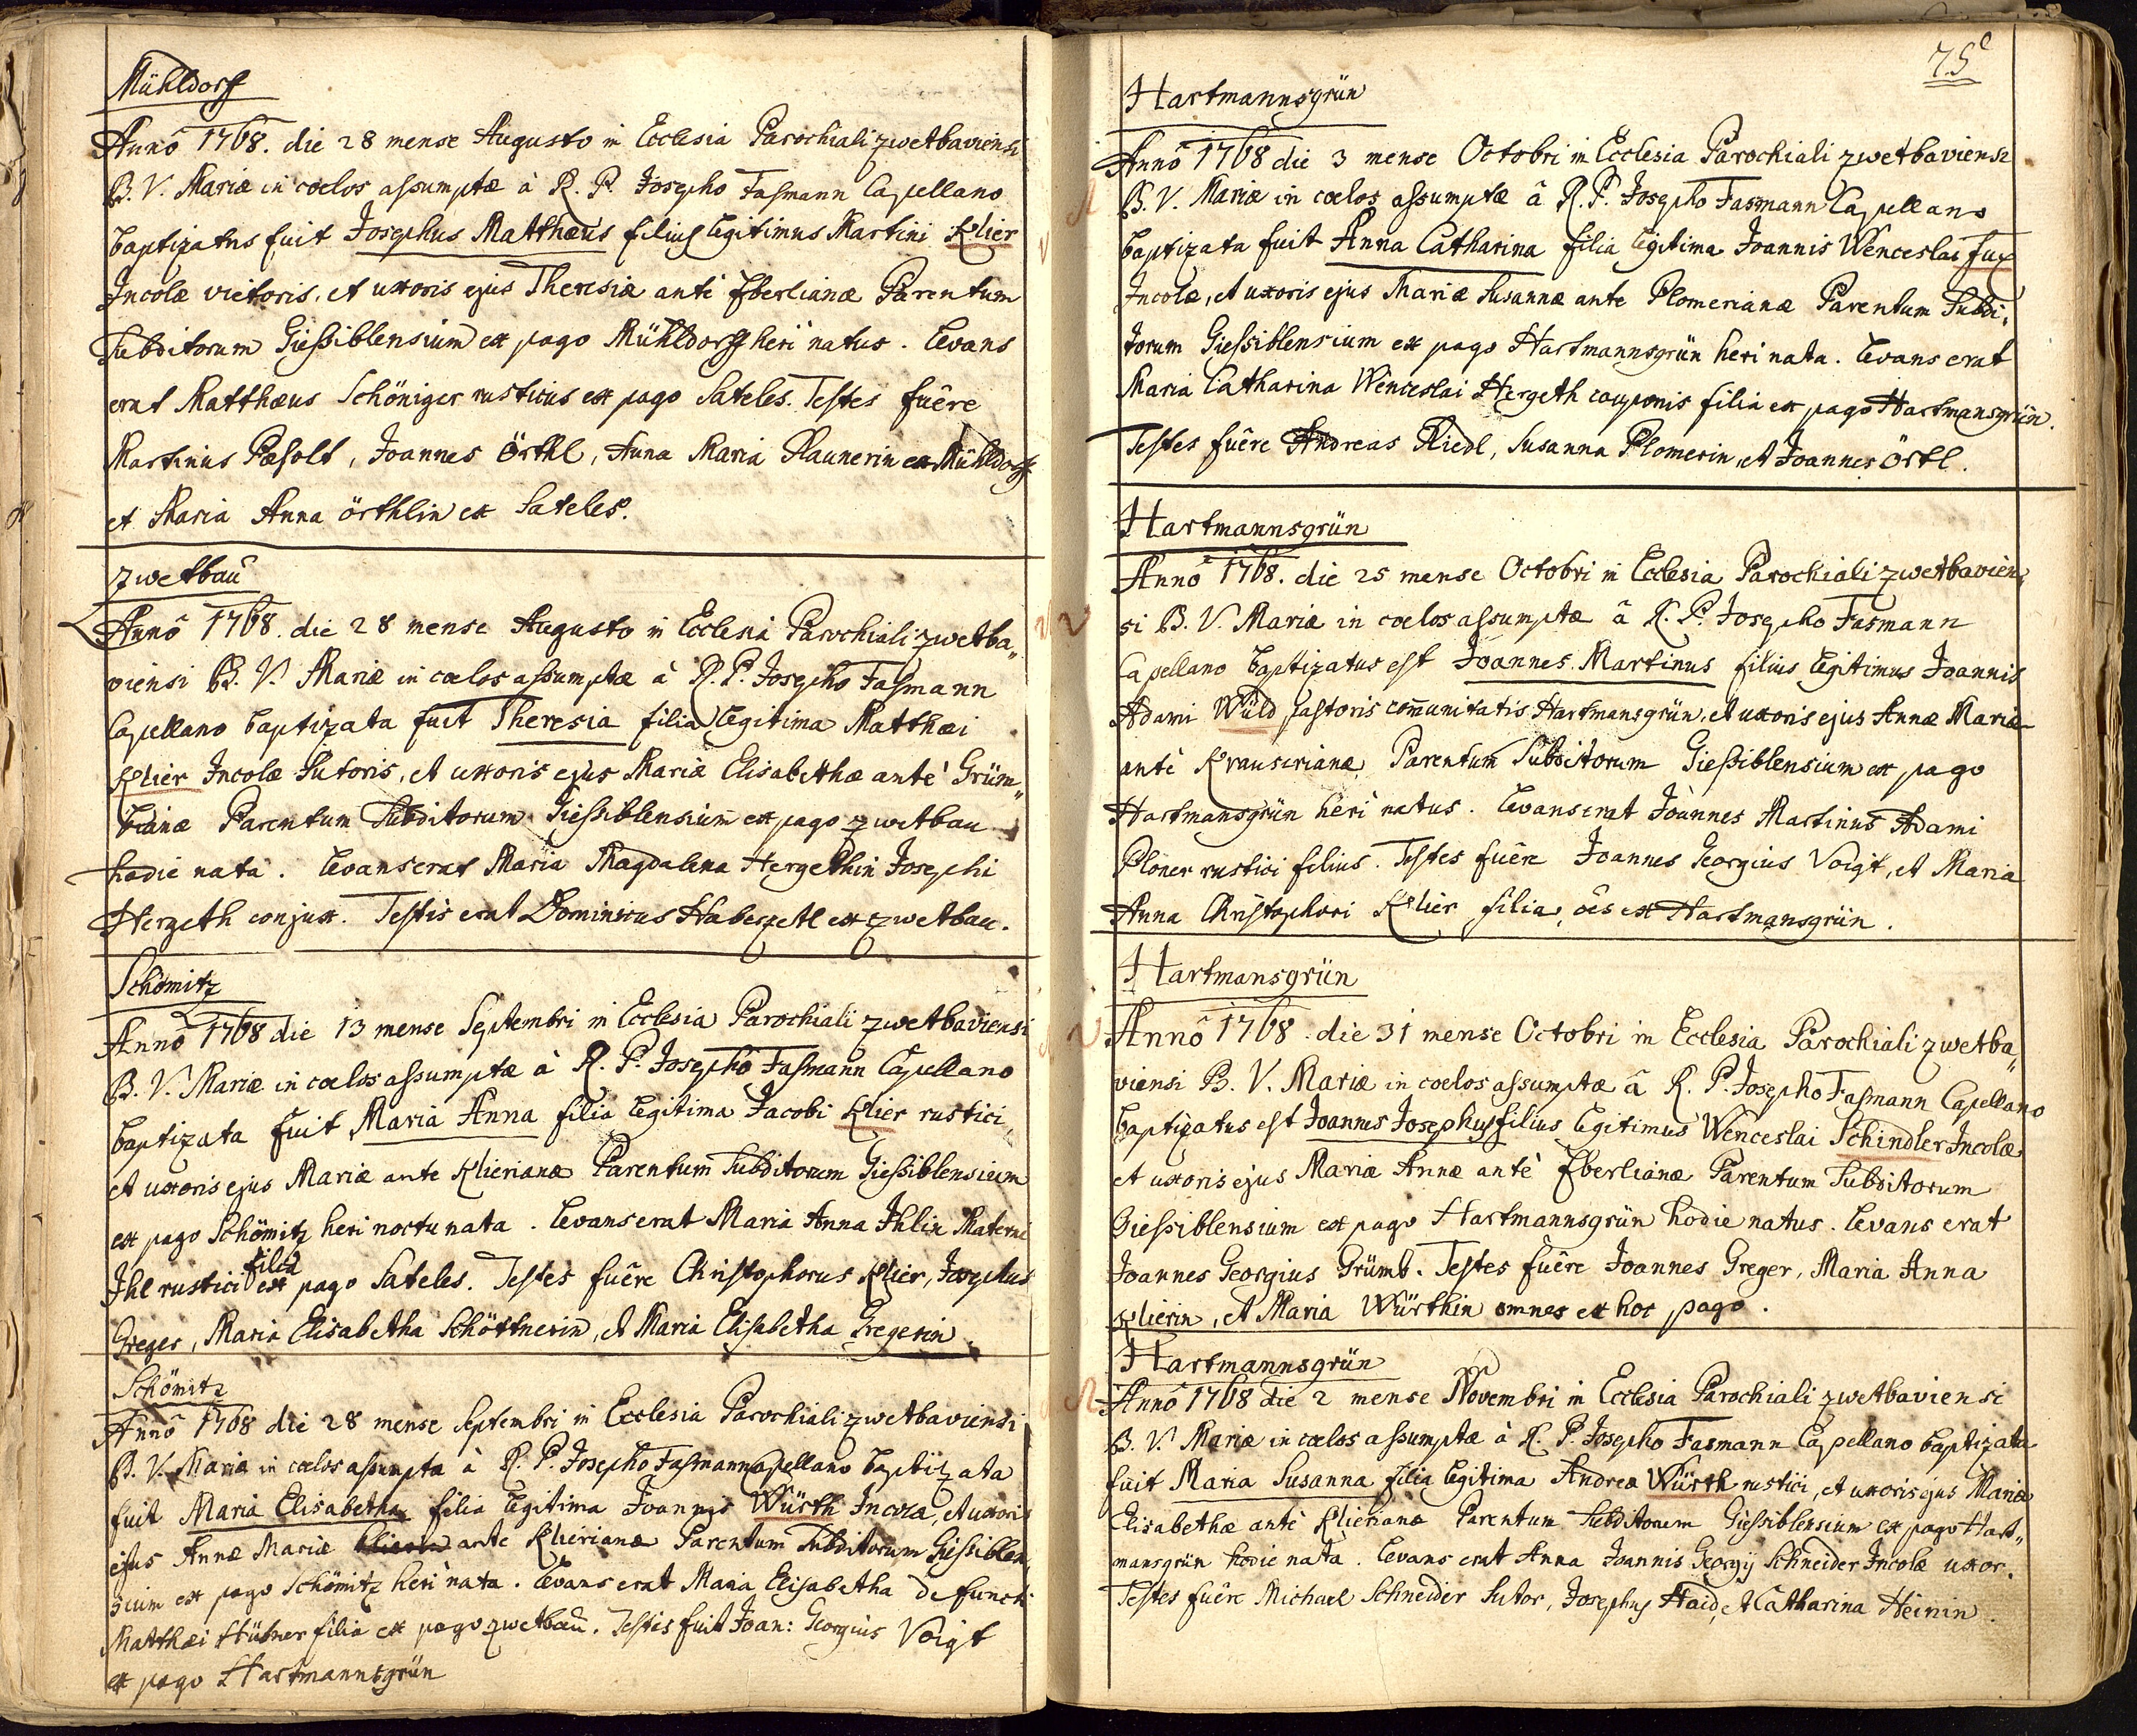 Mühldorff
Annô 1768. die 28 mense Augusto in Ecclesia Parochiali zwetbaviensi
B. V. Mariæ in cœlos assumptæ à R. P. Josepho Fasmann Capellano
baptizatus fuit Josephus Matthæus filius legitimus Martini Klier
Incolæ vietoris, et uxoris ejus Theresiæ antè Eberlianæ Parentum
Subditorum Giessiblensium ex pago Mühldorff heri natus. Levans
erat Matthæus Schöniger rusticus ex pago Sateles. Testes fuêre
Martinus Pæsolt, Joannes Örthl, Anna Maria Plaunerin ex Mühldorff
et Maria Anna örthlin ex Sateles.
Zwetbau
Annô 1768. die 28 mense Augusto in Ecclesia Parochiali zwetba„
viensi B. V. Mariæ in cœlos assumptæ à R. P. Josepho Fasmann
Capellano baptizata fuit Theresia filia legitima Matthæi
Klier Incolæ Sutoris, et uxoris ejus Mariæ Elisabethæ antè Grüm„
bianæ Parentum Subditorum Giessiblensium ex pago zwetbau
hodie nata. Levans erat Maria Magdalena Hergethin Josephi
Hergeth conjux. Testis erat Dominicus Haberzetl ex zwetbau.
Schömitz
Annô 1768 die 13 mense Septembri in Ecclesia Parochiali zwetbaviensi
B. V. Mariæ in cœlos assumptæ à R. P. Josepho Fasmann Capellano
baptizata fuit Maria Anna filia legitima Jacobi Klier rustici,
et uxoris ejus Mariæ ante Klierianæ Parentum Subditorum Giessiblensium
ex pago Schömitz heri noctu nata. Levans erat Maria Anna Ihlin Materni
Ihl rustici filia ex pago Sateles. Testes fuêre Christophorus Klier, Josephus
Greger, Maria Elisabetha Schöttnerin, et Maria Elisabetha Gregerin.
Schömitz
Annô 1768 die 28 mense Septembri in Ecclesia Parochiali zwetbaviensi
B. V. Mariæ in cœlos assumpta à R. P. Josepho Fasmann Capellano baptizata
fuit Maria Elisabetha filia legitima Joannis Würth Incolæ, et uxoris
ejus Annæ Mariæ ante Klierianæ Parentum Subditorum Giessiblen„
sium ex pago Schömitz heri nata. Levans erat Maria Elisabetha defuncti
Matthæi Hübner filia ex pago zwetbau. Testis fuit Joan: Georgius Voigt
ex pago Hartmannsgrün
75
Hartmannsgrün
Annô 1768 die 3 mense Octobri in Ecclesia Parochiali zwetbaviensi
B. V. Mariæ in cœlos assumptæ â R. P. Josepho Fasmann Capellano
baptizata fuit Anna Catharina filia legitima Joannis Wenceslai Fux
Incolæ, et uxoris ejus Mariæ Susannæ ante Plomerianæ Parentum Subdi„
torum Giessiblensium ex pago Hartmannsgrün heri nata. Levans erat
Maria Catharina Wenceslai Hergeth cauponis filia ex pago Hartmansgrün.
Testes fuêre Andreas Riedl, Susanna Plomerin, et Joannes Örtl.
Hartmannsgrün
Annô 1768. die 25 mense Octobri in Ecclesia Parochiali zwetbavien„
si B. V. Mariæ in cœlos assumptæ â R. P. Josepho Fasmann
Capellano baptizatus est Joannes Martinus filius legitimus Joannis
Adami Wüld pastoris com̄unitatis Hartmansgrün, et uxoris ejus Annæ Mariæ
antè Krauserianæ Parentum Subditorum Giessiblensium ex pago
Hartmansgrün heri natus. Levans erat Joannes Martinus Adami
Ploner rustici filius. Testes fuêre Joannes Georgius Voigt, et Maria
Anna Christophori Klier filia, oēs ex Hartmansgrün.
Hartmansgrün
Annô 1768. die 31 mense Octobri in Ecclesia Parochiali zwetba„
viensi B. V. Mariæ in cœlos assumptæ â R. P. Josepho Fasmann Capellano
baptizatus est Joannes Josephus filius legitimus Wenceslai Schindler Incolæ
et uxoris ejus Mariæ Annæ antè Eberlianæ Parentum Subditorum
Giessiblensium ex pago Hartmannsgrün hodie natus. Levans erat
Joannes Georgius Grümb. Testes fuêre Joannes Greger, Maria Anna
Klierin, et Maria Würthin omnes ex hoc pago.
Hartmannsgrün
Annô 1768 die 2 mense Novembri in Ecclesia Parochiali zwetbaviensi
B. V. Mariæ in cœlos assumptæ à R. P. Josepho Fasmann Capellano baptizata
fuit Maria Susanna filia legitima Andreæ Würth rustici, et uxoris ejus Mariæ
Elisabethæ antè Klierianæ Parentum Subditorum Giessiblensium ex pago Hart„
mansgrün hodie nata. Levans erat Anna Joannis Georgij Schneider Incolæ uxor.
Testes fuêre Michael Schneider Sutor, Josephus Haid, et Catharina Heinin.